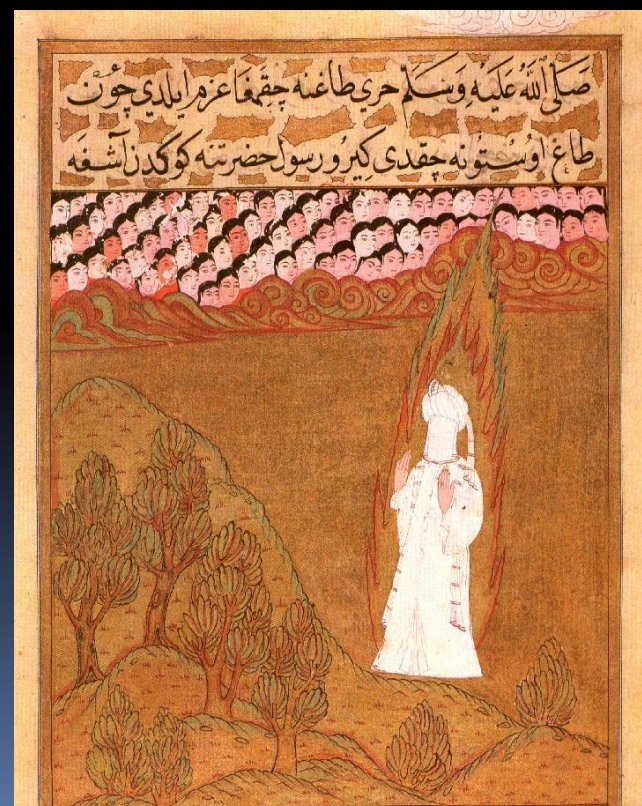 صَلَّى اللهُ عَلَيْهِ وَسَلَّمَ حري طاغنه چِقمغا عزم ايلدي چون
طاغ اوُستوُنه چقدى كيرو رسول حضرتنه كوكدن آشغه